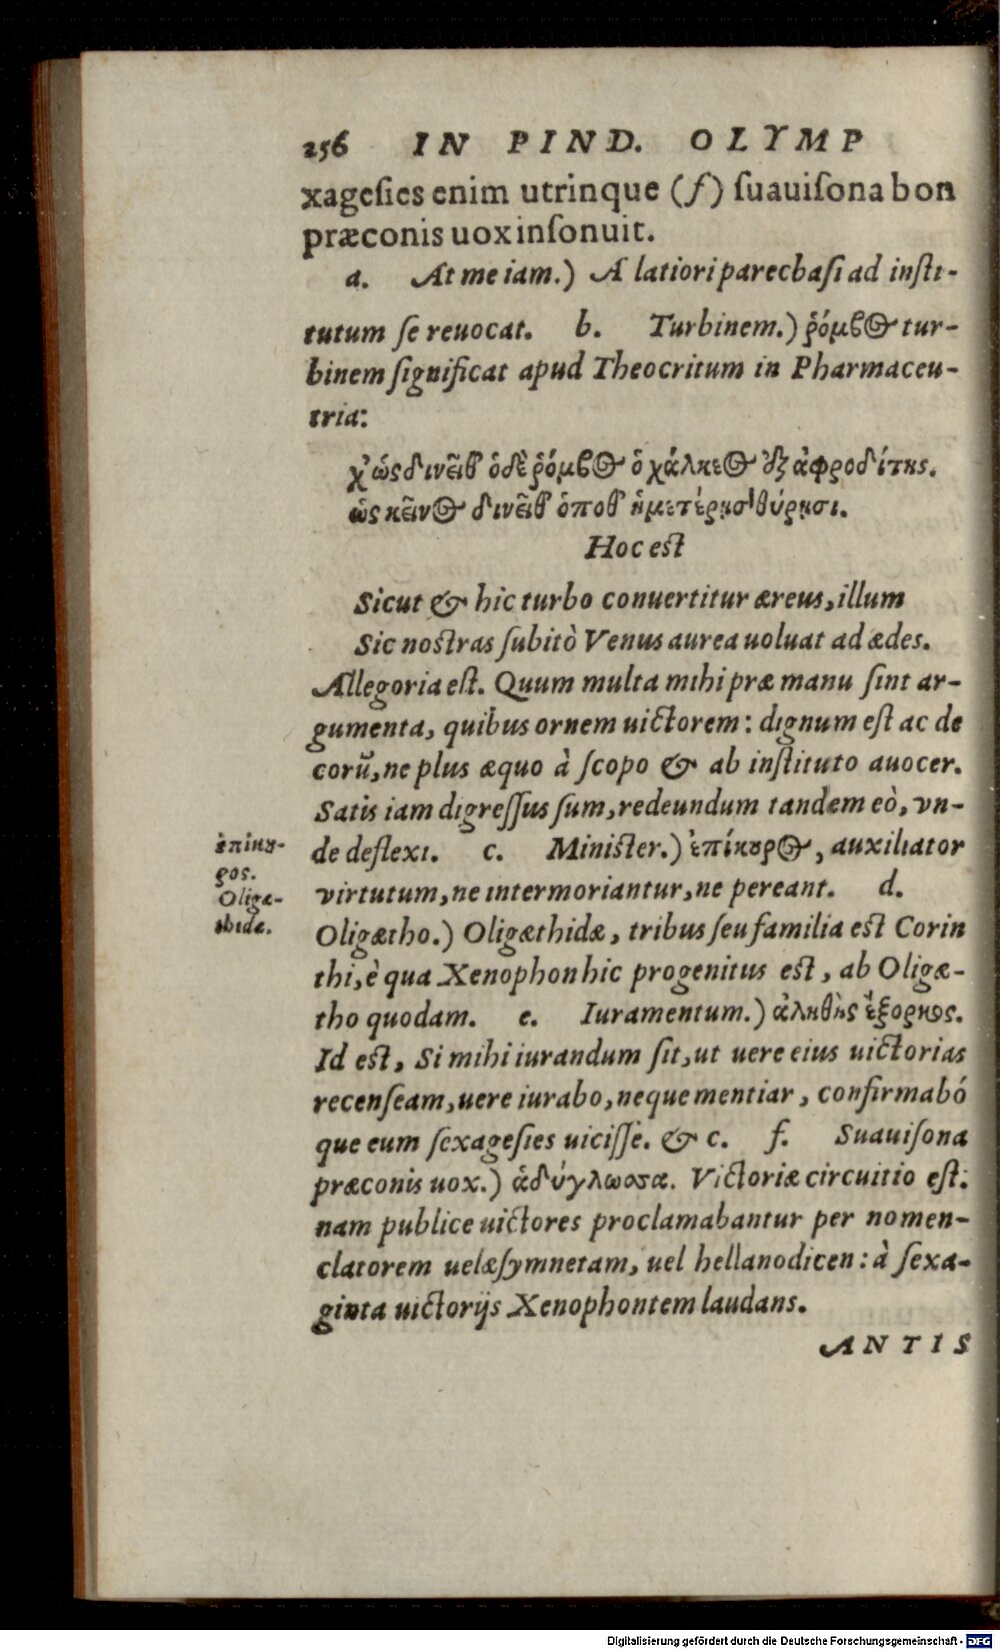 256 IN PIND. OLYMP
xagesies enim utrinque (f) suauisona bon
præconis uox insonuit.
a. At me iam.) A latiori parecbasi ad insti-
tutum se reuocat. b. Turbinem.) ῥόμβος tur-
binem significat apud Theocritum in Pharmaceu-
tria:
χ' ὡς δινεῖθ' ὅδε ῥόμβος ὁ χάλκεος ἐξ ἀφροδίτης.
ὡς κεῖνος δινεῖθ' ὁποθ' ἡμετέρῃσι θύρῃσι.
Hoc est
Sicut & hic turbo conuertitur æreus, illum
Sic nostras subitò Venus aurea uoluat ad ædes.
Allegoria est. Quum multa mihi præ manu sint ar-
gumenta, quibus ornem uictorem: dignum est ac de
corũ, ne plus æquo à scopo & ab instituto auocer.
Satis iam digressus sum, redeundum tandem eò, vn-
de deflexi. c. Minister.) ἐπίκουρος, auxiliator
ἐπίκου-
ρος.
virtutum, ne intermoriantur, ne pereant. d.
Oligæ-
thidæ.
Oligætho.) Oligæthidæ, tribus seu familia est Corin
thi, è qua Xenophon hic progenitus est, ab Oligæ-
tho quodam. e. Iuramentum.) ἀληθὴς ἔξορκος.
Id est, Si mihi iurandum sit, ut uere eius uictorias
recenseam, uere iurabo, neque mentiar, confirmabó
que eum sexagesies uicisse. & c. f. Suauisona
præconis uox.) ἁδύγλωσσα. Victoriæ circuitio est:
nam publice uictores proclamabantur per nomen-
clatorem uel æsymnetam, uel hellanodicen: à sexa-
ginta uictorijs Xenophontem laudans.
ANTIS
Digitalisierung gefördert durch die Deutsche Forschungsgemeinschaft - DFG